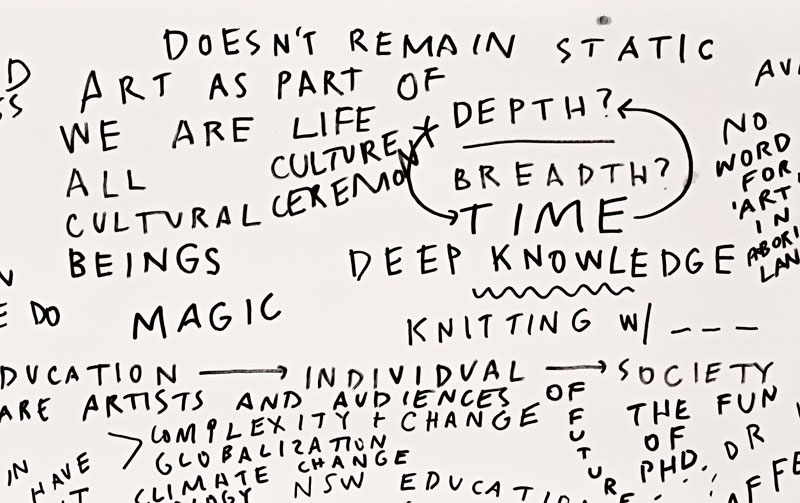 DOESN'T REMAIN STATIC
ART AS PART OF
WE ARE LIFE
ALL
CULTURAL
BEINGS
CULTURE
CEREMONY
DEPTH?
BREADTH?
TIME
NO
WORD
FOR
'ART
IN
DEEP KNOWLEDGE
DO
MAGIC
KNITTING W/ ---
DUCATION → INDIVIDUAL → SOCIETY
ARE ARTISTS AND AUDIENCES OF
FUTUR
COMPLEXITY + CHANGE
GLOBALIZATION
CLIMATE CHANGE
THE FUN
OF
PHD.
DR
IN
HAVE
NSW EDUCATI